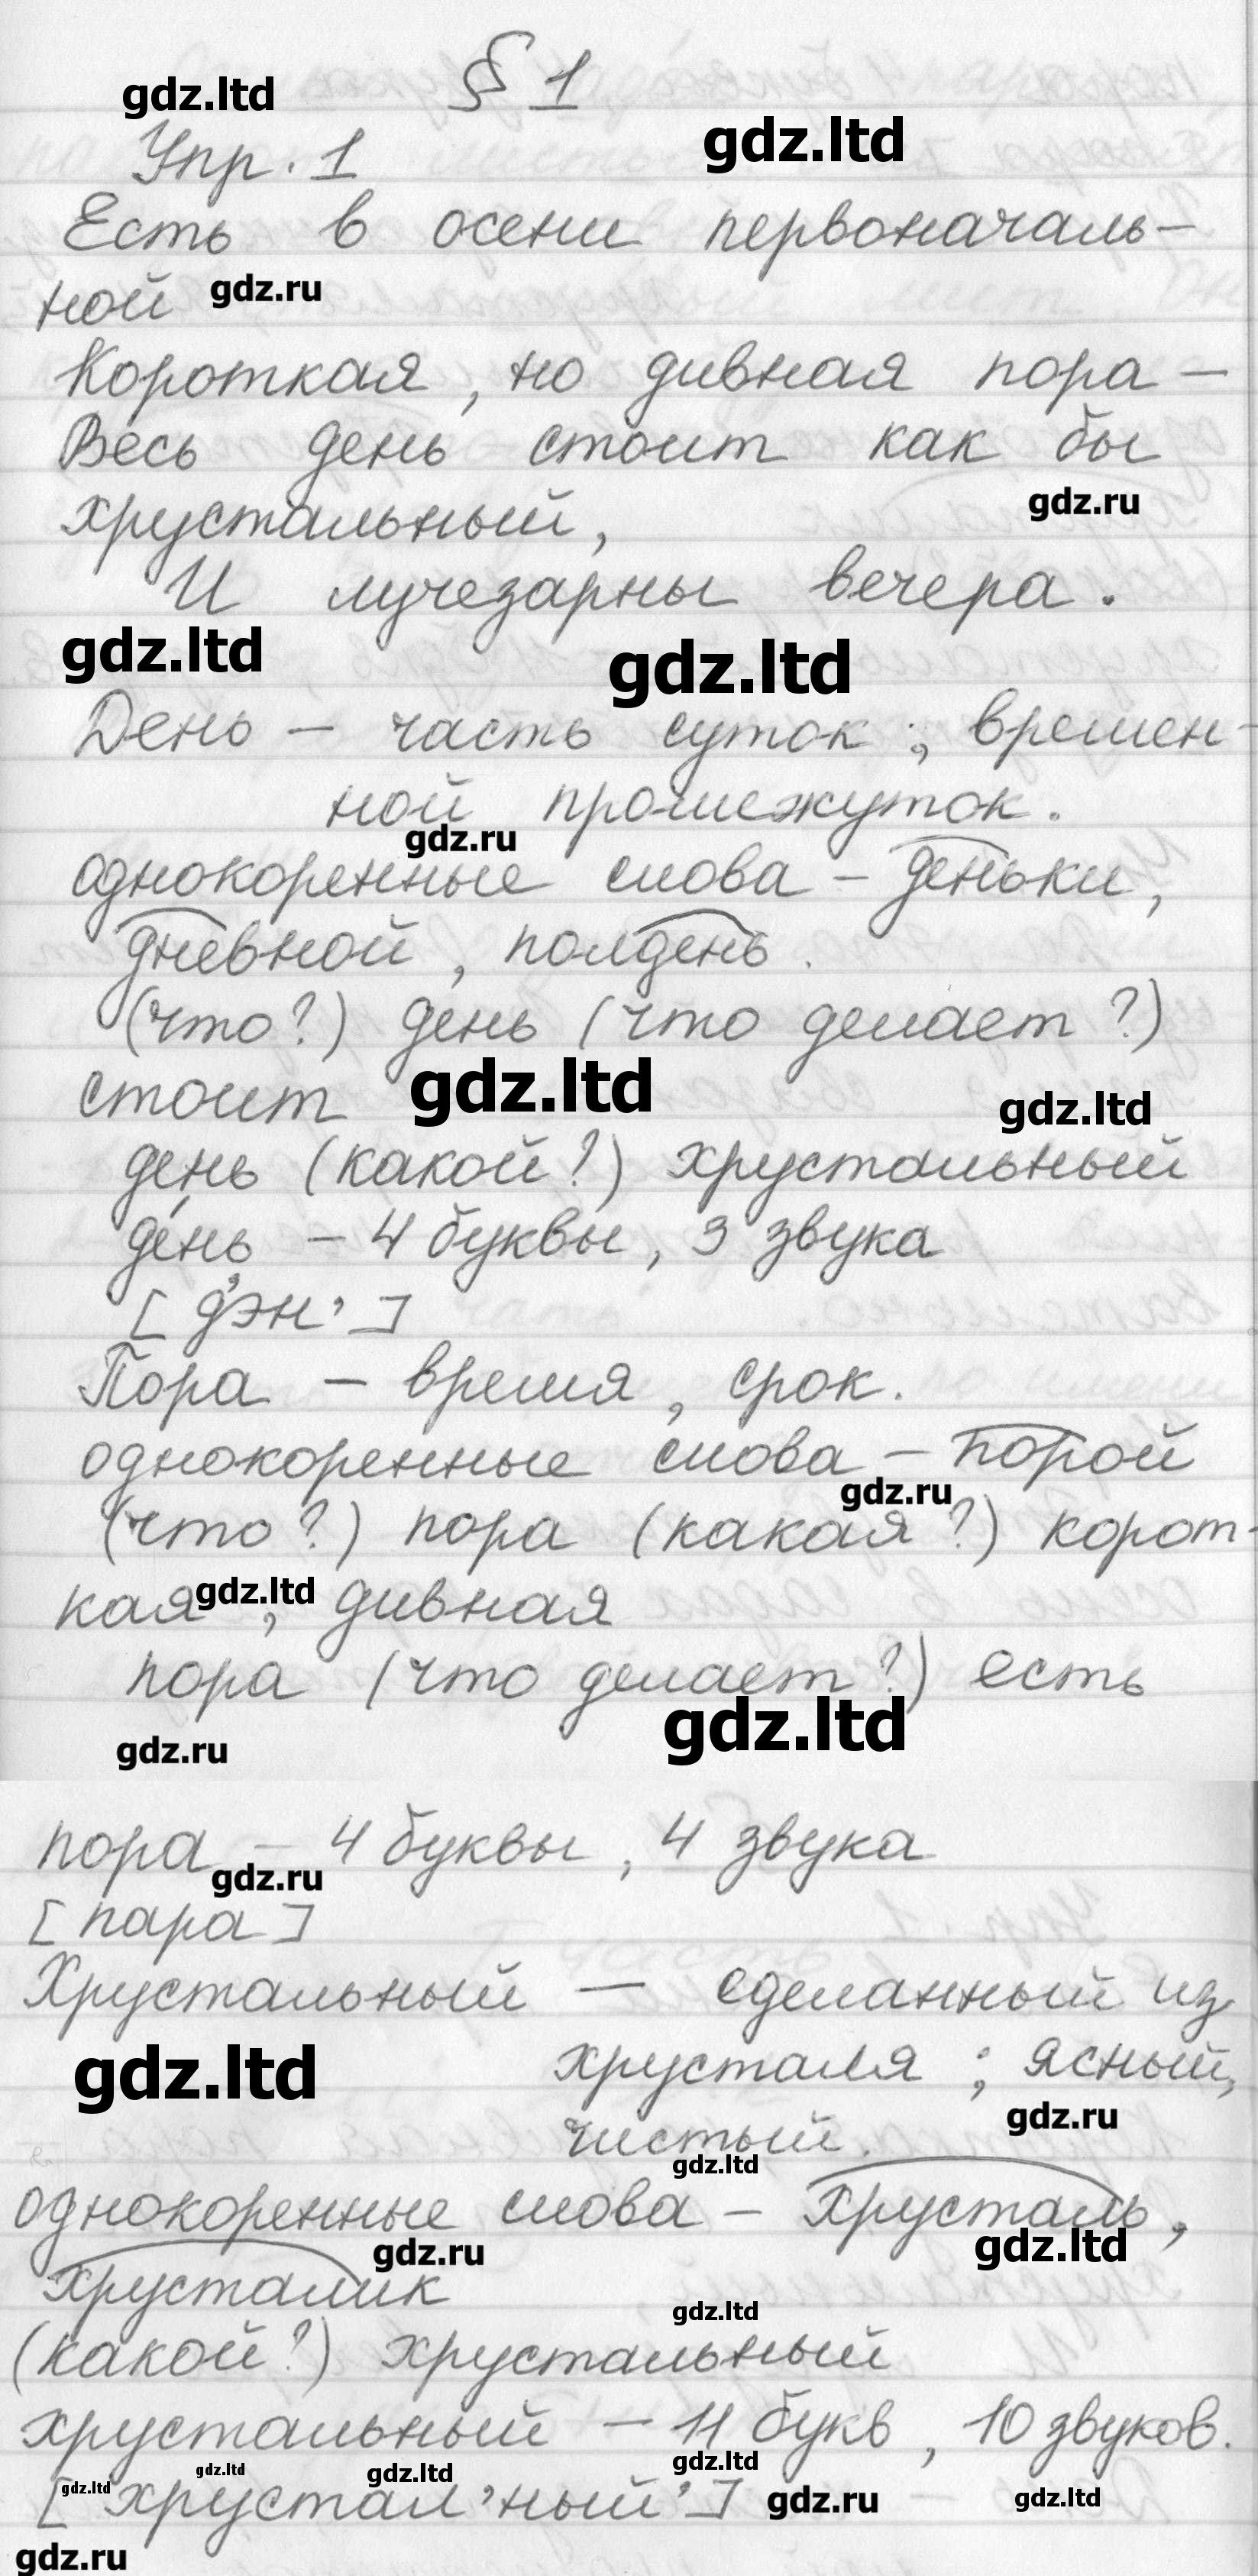 § 1
gdz.ltd
gdz.ltd
Упр. 1
Есть в осени первоначаль-
ной gdz.ru
Короткая, но дивная пора –
Весь день стоит как бы
gdz.ru
хрустальный,
И лучезарны вечера.
gdz.ltd gdz.ltd
День – часть суток; времен-
ной промежуток.
gdz.ru
однокоренные слова – деньки,
дневной, полдень.
(что?) день (что делает?)
стоит gdz.ltd gdz.ltd
день (какой?) хрустальный
день – 4 буквы, 3 звука
[д'эн']
Пора – время, срок.
однокоренные слова – порой
gdz.ru
(что?) пора (какая?) корот-
кая, дивная
gdz.ltd
пора (что делает?) есть
gdz.ltd
gdz.ru
пора – 4 буквы, 4 звука
gdz.ru
[пара]
Хрустальный – сделанный из
gdz.ltd хрусталя; ясный,
gdz.ru
чистый.
gdz.ltd
однокоренные слова – хрусталь,
gdz.ru gdz.ltd
хрусталик
gdz.ltd
(какой?) хрустальный
хрустальный – 11 букв, 10 звуков.
gdz.ltd gdz.ltd gdz.ltd gdz.ltd
[хрустал'ный'] gdz.ru gdz.ltd
gdz.ru